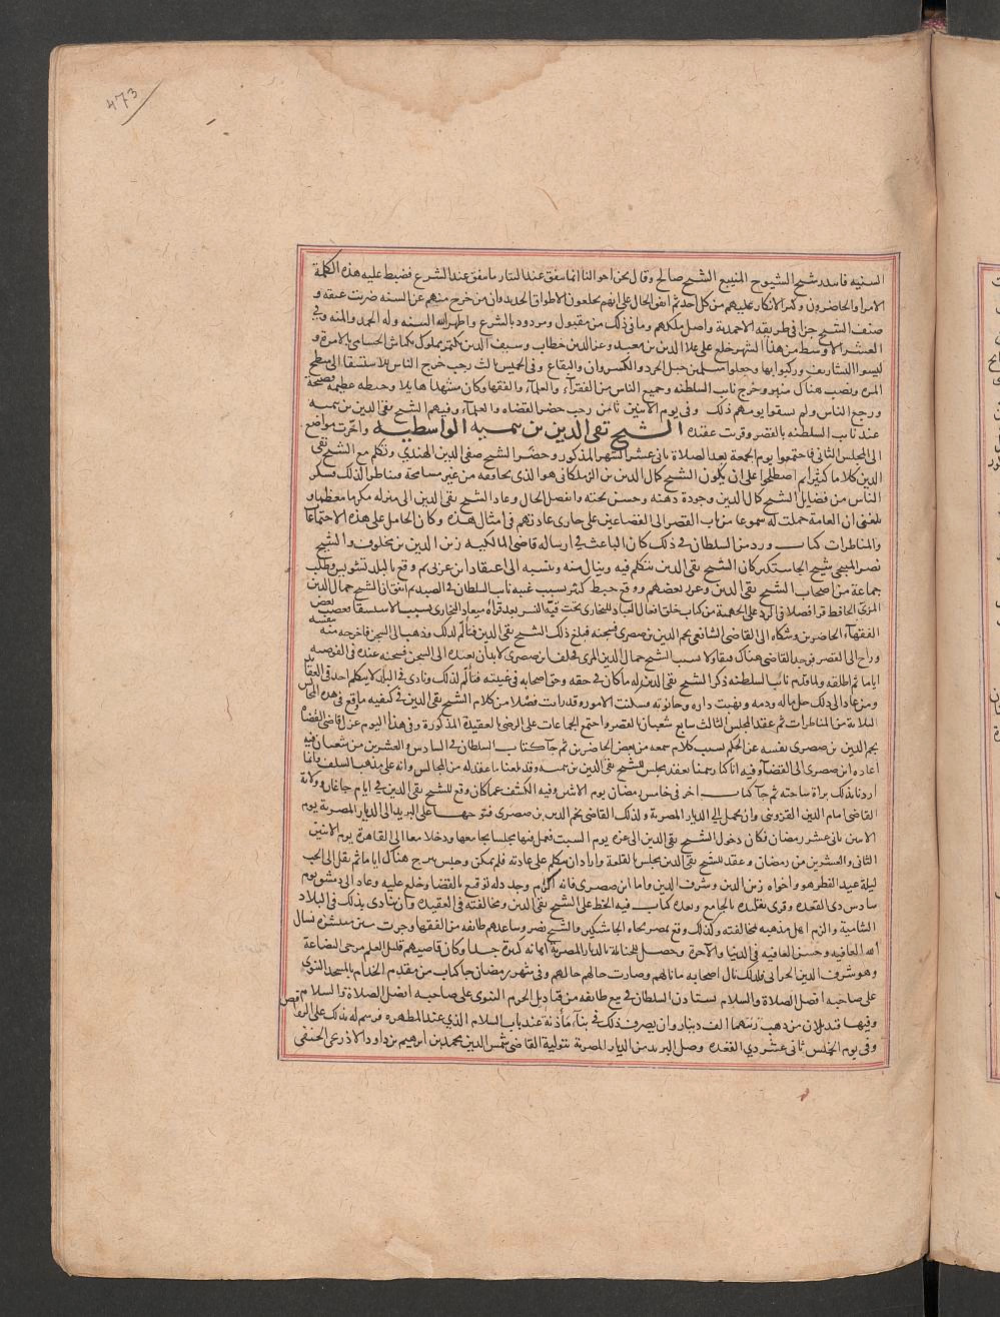 473
السنيه فابتدر شيخ الشيوخ المنيبع الشيخ صالح وقال نحن احوالنا انما تنفق عند التتار ما تنفق عند الشرع فضبط عليه هذه الكلمة
الامرا والحاضرون وكثر الانكار عليهم من كل احد ثم اتفق الحال على انهم يخلعون الاطواق الحديد وان من خرج منهم عن السنه ضربت عنقه و
صنف الشيخ جزا في طريقه الاحمدية واصل مسلكهم وما في ذلك من مقبول ومردود بالشرع واظهر الله السنه وله الحمد والمنه وفي
العشر الاوسط من هذا الشهر خلع على علا الدين بن معبد وعز الدين خطاب وسيف الدين بكتمر مملوك بكتاش الحسامي بالامرة و
لبسوا التشاريف وركبوا بها وسلموا جبل الجرد والكسروان والبقاع وفي الخميس ثالث رجب خرج الناس للاستسقا الى سطح
المزه ونصب هناك منبر وخرج نايب السلطنه وجميع الناس من الفقراء والعلماء والفقها وكان مشهدا هايلا وخطبه عظيمه فصيحة
ورجع الناس ولم يسقوا يومهم ذلك وفي يوم الاثنين ثامن رجب حضر القضاه والعلماء وفيهم الشيخ تقي الدين بن تيميه
عند نايب السلطنه بالقصر وقريت عقيده الشيخ تقي الدين بن تيميه الواسطيه واخرت مواضع
الى المجلس الثاني فاجتمعوا يوم الجمعة بعد الصلاة ثاني عشر الشهر المذكور وحضر الشيخ صفي الدين الهندي وتكلم مع الشيخ تقي
الدين كلاما كثيرا ثم اصطلحوا على ان يكون الشيخ كمال الدين بن الزملكاني هو الذي يحاققه من غير مسامحة فتناظرا لذلك وشكر
الناس من فضايل الشيخ كمال الدين وجودة ذهنه وحسن بحثه وانفصل الحال وعاد الشيخ تقي الدين الى منزله مكرما معظما و
بلغني ان العامة حملت له شموعا من باب القصر الى القصاعين على جاري عادتهم في امثال هذه وكان الحامل على هذه الاجتماعات
والمناظرات كتاب ورد من السلطان في ذلك كان الباعث في ارساله قاضي المالكيه زين الدين بن مخلوف والشيخ
نصر المنبجي شيخ الجاشنكير كان الشيخ تقي الدين يتكلم فيه وينال منه وينسبه الى اعتقاد ابن عربي ثم وقع بالبلد تشويش وطلب
جماعة من اصحاب الشيخ تقي الدين وعزر بعضهم ووقع خبط كثير بسبب غيبه نايب السلطان في الصيد ثم اتفق ان الشيخ جمال الدين
المزي الحافظ قرا فصلا في الرد على الجهمية من كتاب خلق افعال العباد للبخاري تحت قبة النسر بعد قراة ميعاد البخاري بسبب الاستسقا فغضب بعض
الفقهاء الحاضرين وشكاه الى القاضي الشافعي نجم الدين بن صصرى فسجنه فبلغ ذلك الشيخ تقي الدين فتالم لذلك وذهب الى السجن فاخرجه منه بنفسه
وراح الى القصر فوجد القاضي هناك فتقاولا بسبب الشيخ جمال الدين المزي فحلف ابن صصرى لا بد ان يعيده الى السجن فسجنه عنده في القوصيه
اياما ثم اطلقه ولما قدم نايب السلطنه ذكر الشيخ تقي الدين له ما كان في حقه وحق اصحابه في غيبته فتالم لذلك ونادى في البلد لا يتكلم احد في العقايد
ومن عاد الى ذلك حل ماله ودمه ونهبت داره وحانوته فسكنت الامور وقد رايت فصلا من كلام الشيخ تقي الدين في كيفيه ما وقع في هذه المجالس
الثلاثة من المناظرات ثم عقد المجلس الثالث سابع شعبان بالقصر واجتمع الجماعات على الرضى بالعقيدة المذكورة وفي هذا اليوم عزل قاضي القضاه
نجم الدين بن صصرى نفسه عن الحكم بسبب كلام سمعه من بعض الحاضرين ثم جا كتاب السلطان في السادس والعشرين من شعبان فيه
اعاده ابن صصرى الى القضاء وفيه انا كنا رسمنا بعقد مجلس للشيخ تقي الدين بن تيميه وقد بلغنا ما عقد له من المجالس وانه على مذهب السلف وانما
اردنا بذلك براة ساحته ثم جا كتاب اخر في خامس رمضان يوم الاثنين وفيه الكشف عما كان وقع للشيخ تقي الدين في ايام جاغان وولاية
القاضي امام الدين القزويني وان يحمل الى الديار المصرية وكذلك القاضي نجم الدين بن صصرى فتوجها على البريد الى الديار المصرية يوم
الاثنين ثاني عشر رمضان فكان دخول الشيخ تقي الدين الى غزه يوم السبت فعمل فيها مجلسا بجامعها ودخلا معا الى القاهرة يوم الاثنين
الثاني والعشرين من رمضان وعقد للشيخ تقي الدين مجلس بالقلعة واراد ان يتكلم على عادته فلم يمكن وحبس ببرج هناك اياما ثم نقل الى الجب
ليلة عيد الفطر هو واخواه زين الدين وشرف الدين واما ابن صصرى فانه اكرم وجدد له توقيع بالقضا وخلع عليه وعاد الى دمشق يوم
سادس ذي القعده وقرى تقليده بالجامع وبعده كتاب فيه الحط على الشيخ تقي الدين ومخالفته في العقيده وان ينادى بذلك في البلاد
الشامية والزم اهل مذهبه بمخالفته وكذلك وقع بمصر بجاه الجاشنكير والشيخ نصر وساعدهم طايفه من الفقها وجرت فتن منتشره نسال
الله العافيه وحسن العافيه في الدنيا والاخرة وحصل للحنابلة بالديار المصرية اهانة كثيرة جدا وكان قاضيهم قليل العلم مزجى البضاعة
وهو شرف الدين الحراني فلذلك نال اصحابه ما نالهم وصارت حالهم حالهم وفي شهر رمضان جا كتاب من مقدم الخدام بالمسجد النبوي
على صاحبه افضل الصلاة والسلام يستاذن السلطان في بيع طايفه من قناديل الحرم النبوي على صاحبه افضل الصلاة والسلام
وفيها قنديلان من ذهب زنتهما الف دينار وان يصرف ذلك في بناء مأذنة عند باب السلام الذي عند المطهره فرسم له بذلك
وفي يوم الخميس ثاني عشر ذي القعده وصل البريد من الديار المصرية بتولية القاضي شمس الدين محمد بن ابرهيم بن داود الاذرعي الحنفي